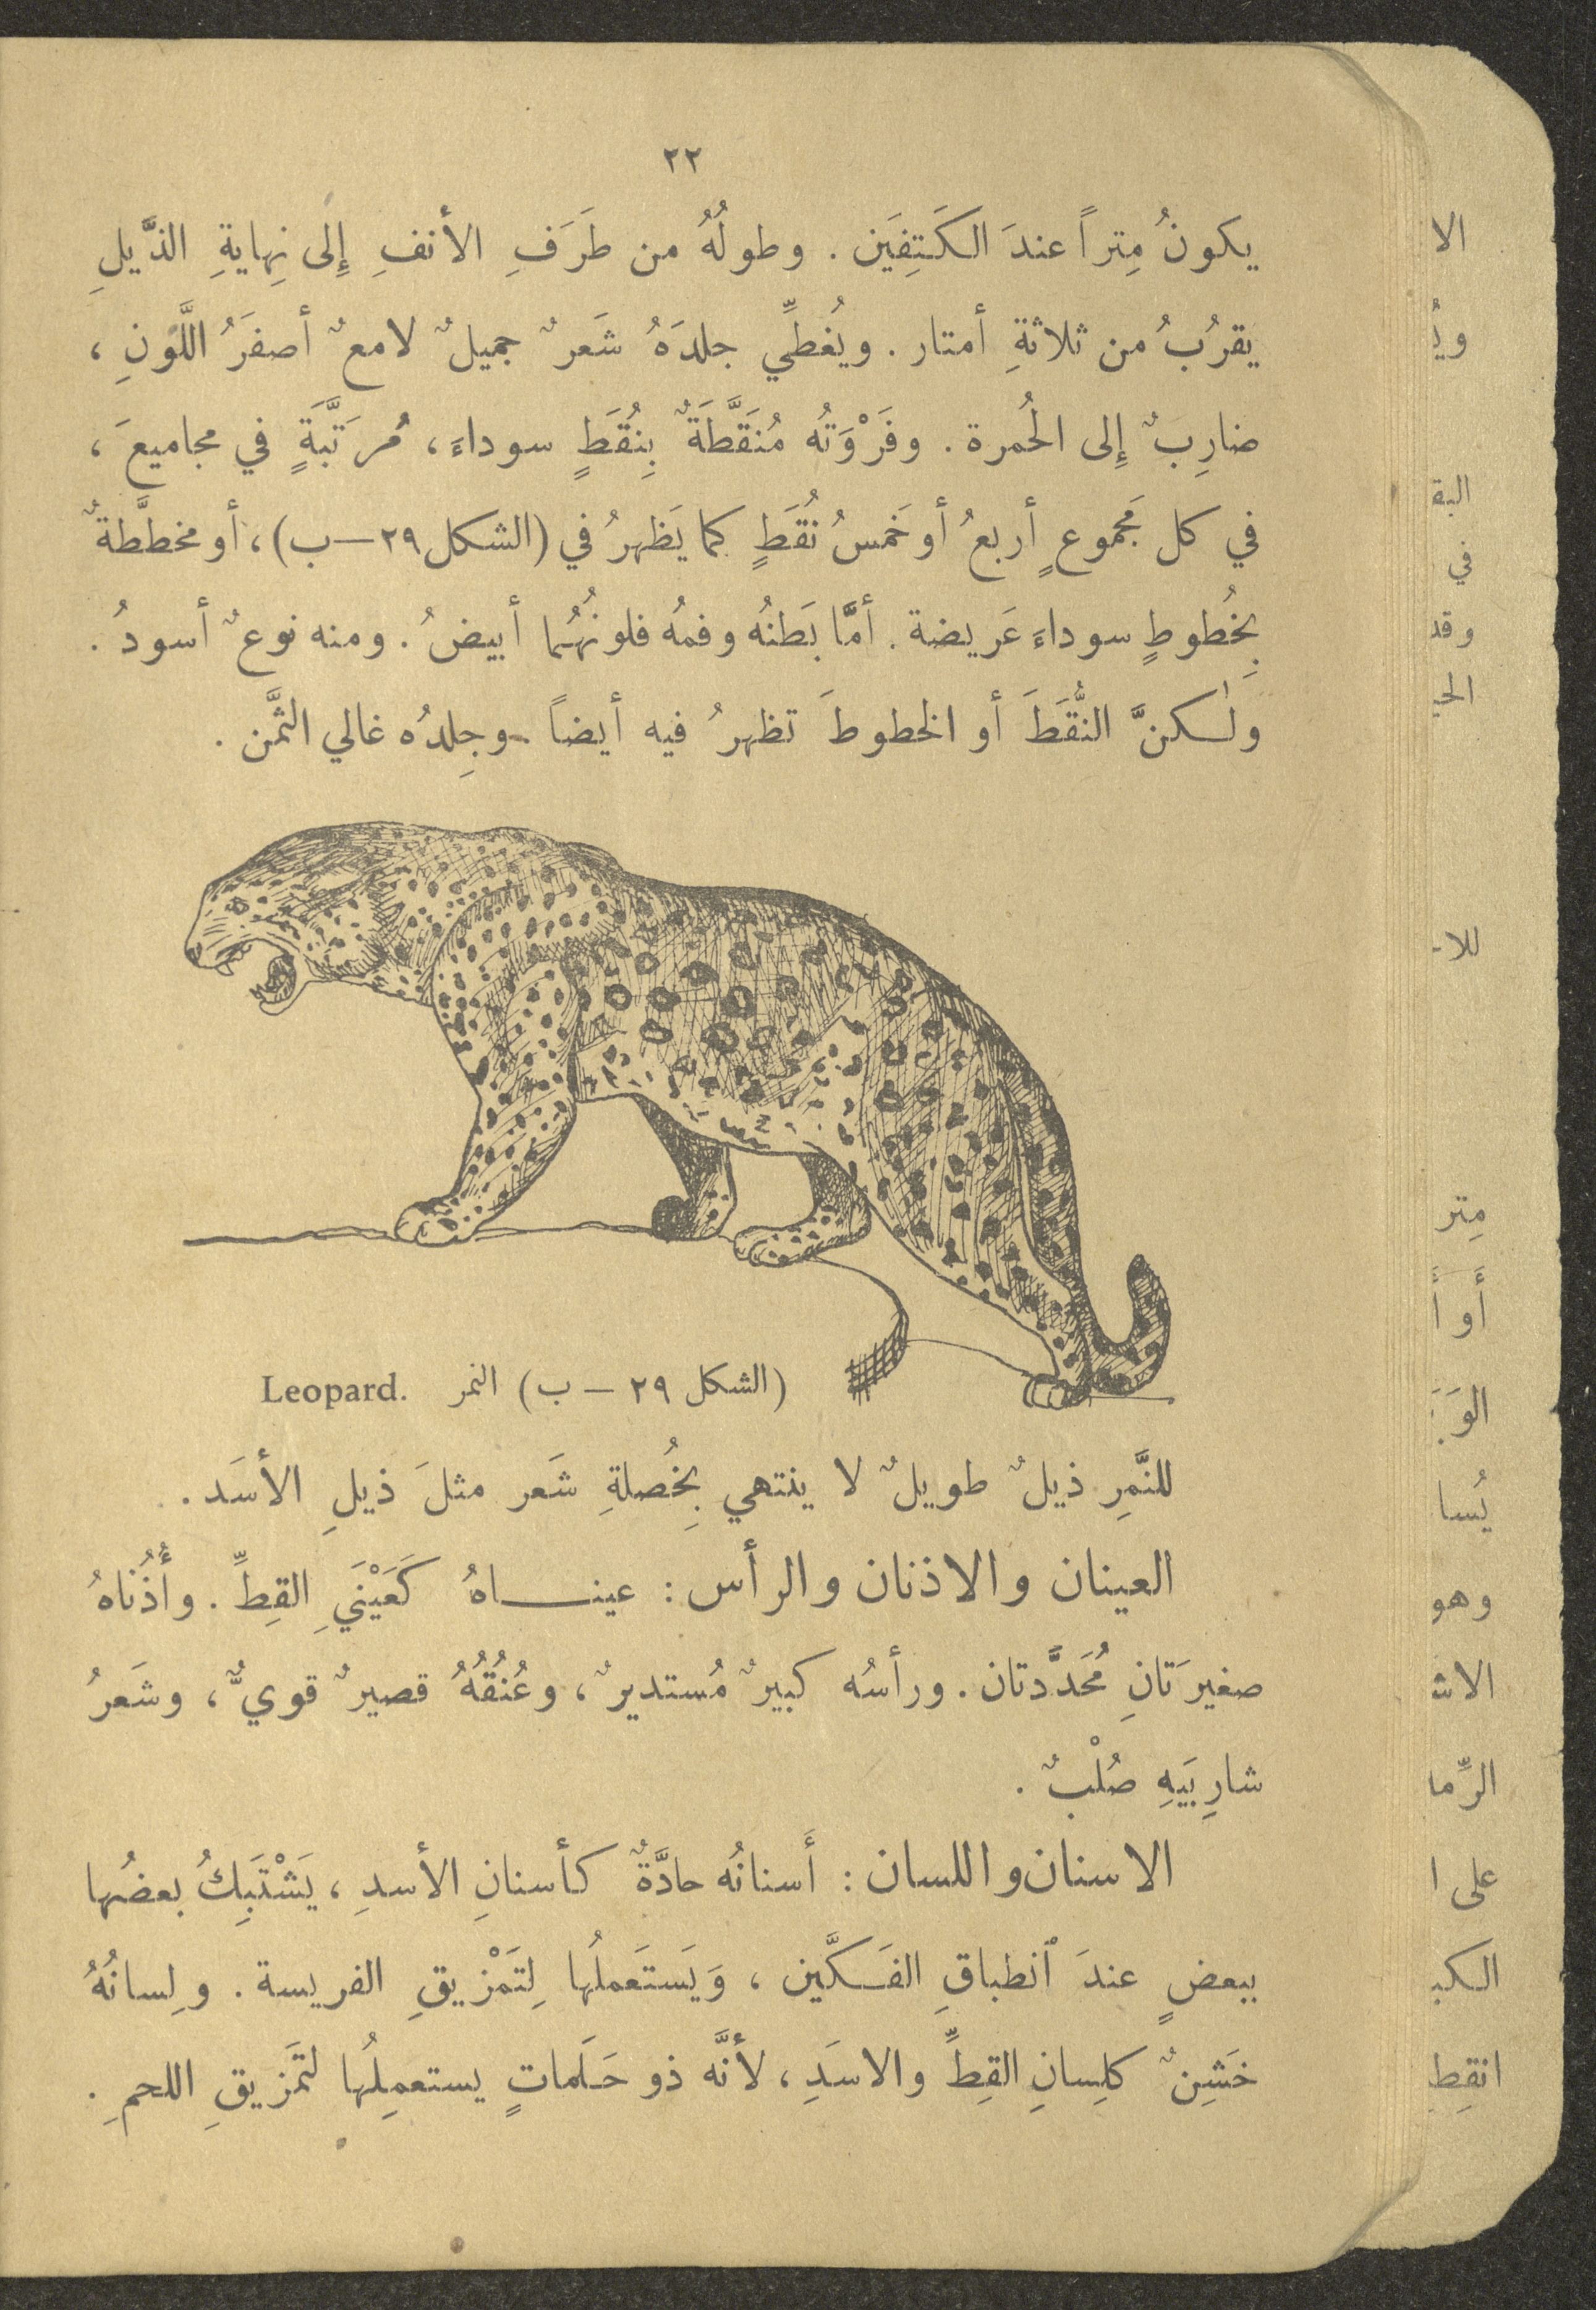 ٢٢
يكونُ مِتراً عندَ الكَتِفَين . وطولُهُ من طَرَفِ الأنفِ إِلى نِهايةِ الذَّيلِ
يقرُبُ من ثلاثةِ أمتار . ويُغطِّي جلدَهُ شَعرٌ جميلٌ لامعٌ أصفَرُ اللَّونِ ،
ضارِبٌ إِلى الحُمرة . وفَرْوَتُه مُنَقَّطَةٌ بِنُقَطٍ سوداءَ ، مُرَتَّبَةٍ في مجاميعَ ،
في كل مَجموعٍ أربعُ أو خَمسُ نُقَطٍ كما يَظهرُ في (الشكل ٢٩ – ب) ، أو مخططَّةٌ
بِخُطوطٍ سوداءَ عَريضة . أمَّا بَطنُه وفمُه فلونُهُما أبيضُ . ومنه نوعٌ أسودُ .
ولٰكنَّ النُّقَطَ أو الخطوطَ تظهرُ فيه أيضاً . وجِلدُه غالي الثَّمن .
(الشكل ٢٩ – ب) النمر Leopard.
للنَّمِرِ ذيلٌ طويلٌ لا ينتهي بِخُصلةِ شَعر مثلَ ذيلِ الأسَد .
العينان والاذنان والرأس : عينـــاهُ كَعَيْنَيِ القِطِّ . وأُذُناهُ
صغيرَتانِ مُحَدَّدتان . ورأسُه كبيرٌ مُستديرٌ ، وعُنُقُهُ قصيرٌ قويٌّ ، وشَعرُ
شارِبَيهِ صُلْبٌ .
الاسنان واللسان : أَسنانُه حادَّةٌ كأسنانِ الأسدِ ، يَشْتَبِكُ بعضُها
ببعضٍ عندَ ٱنطباقِ الفَكَّين ، وَيَستَعملُها لِتَمْزيقِ الفريسة . ولِسانُهُ
خَشِنٌ كلِسانِ القِطِّ والاسَدِ ، لأنَّه ذو حَلَماتٍ يستعمِلُها لتَمزيقِ اللحمِ .
الا
في
وقد
مِتر
يُسا
وهو
على ا